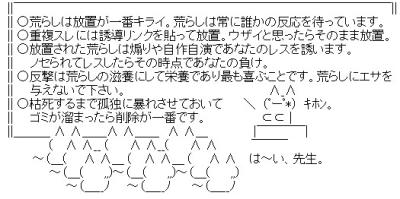 ○荒らしは放置が一番キライ。荒らしは常に誰かの反応を待っています。
○重複スレには誘導リンクを貼って放置。ウザイと思ったらそのまま放置。
○放置された荒らしは煽りや自作自演であなたのレスを誘います。
ノセられてレスしたらその時点であなたの負け。
○反撃は荒らしの滋養にして栄養であり最も喜ぶことです。荒らしにエサを
与えないで下さい。
○枯死するまで孤独に暴れさせておいて
ゴミが溜まったら削除が一番です。
キホン。
は~い、先生。